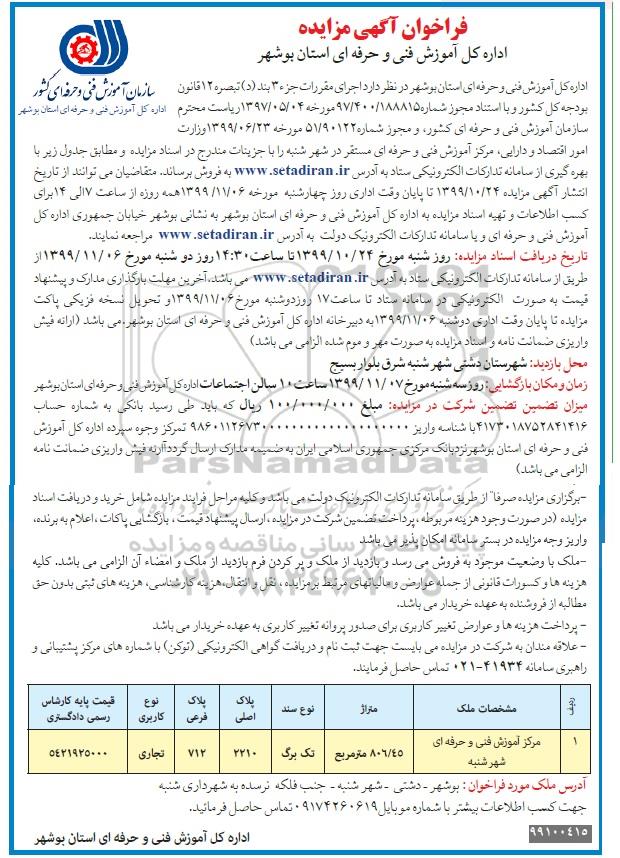 فراخوان آگهی مزایده
اداره کل آموزش فنی و حرفه ای استان بوشهر
سازمان آموزش فنی و حرفه‌ای کشور
اداره کل آموزش فنی و حرفه ای استان بوشهر
اداره کل آموزش فنی و حرفه ای استان بوشهر در نظر دارد اجرای مقررات جزء ۳ بند (د) تبصره ۱۲ قانون
بودجه کل کشور و با استناد مجوز شماره ۹۷/۴۰۰/۱۸۸۸۱۵ مورخه ۱۳۹۷/۰۵/۰۴ ریاست محترم
سازمان آموزش فنی و حرفه ای کشور، و مجوز شماره ۵۱/۹۰۱۲۲ مورخه ۱۳۹۹/۰۶/۲۳ وزارت
امور اقتصاد و دارایی، مرکز آموزش فنی و حرفه ای مستقر در شهر شنبه را با جزییات مندرج در اسناد مزایده و مطابق جدول زیر با
بهره گیری از سامانه تدارکات الکترونیکی ستاد به آدرس www.setadiran.ir به فروش برساند. متقاضیان می توانند از تاریخ
انتشار آگهی مزایده ۱۳۹۹/۱۰/۲۴ تا پایان وقت اداری روز چهارشنبه مورخه ۱۳۹۹/۱۱/۰۶ همه روزه از ساعت ۷ الی ۱۴ برای
کسب اطلاعات و تهیه اسناد مزایده به اداره کل آموزش فنی و حرفه ای استان بوشهر به نشانی بوشهر خیابان جمهوری اداره کل
آموزش فنی و حرفه ای و یا سامانه تدارکات الکترونیک دولت به آدرس www.setadiran.ir مراجعه نمایند.
تاریخ دریافت اسناد مزایده: روز شنبه مورخ ۱۳۹۹/۱۰/۲۴ تا ساعت ۱۴:۳۰ روز دو شنبه مورخ ۱۳۹۹/۱۱/۰۶ از
طریق از سامانه تدارکات الکترونیکی ستاد به آدرس www.setadiran.ir می باشد. آخرین مهلت بارگذاری مدارک و پیشنهاد
قیمت به صورت الکترونیکی در سامانه ستاد تا ساعت ۱۷ روز دوشنبه مورخ ۱۳۹۹/۱۱/۰۶ و تحویل نسخه فزیکی پاکت
مزایده تا پایان وقت اداری دوشنبه ۱۳۹۹/۱۱/۰۶ به دبیرخانه اداره کل آموزش فنی و حرفه ای استان بوشهر. می باشد (ارائه فیش
واریزی ضمانت نامه و اسناد مزایده به صورت مهر و موم شده الزامی می باشد)
محل بازدید: شهرستان دشتی شهر شنبه شرق بلوار بسیج
زمان و مکان بازگشایی: روز سه شنبه مورخ ۱۳۹۹/۱۱/۰۷ ساعت ۱۰ سالن اجتماعات اداره کل آموزش فنی و حرفه ای استان بوشهر
میزان تضمین تضمین شرکت در مزایده: مبلغ ۱۰۰/۰۰۰/۰۰۰ ریال که باید طی رسید بانکی به شماره حساب
فنی و حرفه ای استان بوشهر نزد بانک مرکزی جمهوری اسلامی ایران به ضمیمه مدارک ارسال گردد (ارئه فیش واریزی ضمانت نامه
الزامی می باشد)
-برگزاری مزایده صرفا" از طریق سامانه تدارکات الکترونیک دولت می باشد و کلیه مراحل فرایند مزایده شامل خرید و دریافت اسناد
مزایده (در صورت وجود هزینه مربوطه، پرداخت تضمین شرکت در مزایده، ارسال پیشنهاد قیمت، بازگشایی پاکات، اعلام به برنده،
واریز وجه مزایده در بستر سامانه امکان پذیر می باشد.
-ملک با وضعیت موجود به فروش می رسد و بازدید از ملک و پر کردن فرم بازدید از ملک و امضاء آن الزامی می باشد. کلیه
هزینه ها و کسورات قانونی از جمله عوارض و مالیاتهای مرتبط بر مزایده، نقل و انتقال، هزینه کارشناسی، هزینه های ثبتی بدون حق
مطالبه از فروشنده به عهده خریدار می باشد.
- پرداخت هزینه ها و عوارض تغییر کاربری برای صدور پروانه تغییر کاربری به عهده خریدار می باشد
- علاقه مندان به شرکت در مزایده می بایست جهت ثبت نام و دریافت گواهی الکترونیکی (توکن) با شماره های مرکز پشتیبانی و
راهبری سامانه ۴۱۹۳۴-۰۲۱ تماس حاصل فرمایند.
ردیف مشخصات ملک متراژ نوع سند پلاک اصلی پلاک فرعی نوع کاربری قیمت پایه کارشناس رسمی دادگستری
۱ مرکز آموزش فنی و حرفه ای شهر شنبه ۸۰۶/۴۵ مترمربع تک برگ ۲۲۱۰ ۷۱۲ تجاری ۵۴۲۱۹۲۵۰۰۰
آدرس ملک مورد فراخوان: بوشهر - دشتی - شهر شنبه - جنب فلکه نرسده به شهرداری شنبه
جهت کسب اطلاعات بیشتر با شماره موبایل ۰۹۱۷۴۲۶۰۶۱۹ تماس حاصل فرمائید.
۹۹۱۰۰۴۱۵
اداره کل آموزش فنی و حرفه ای استان بوشهر
ParsNamadData